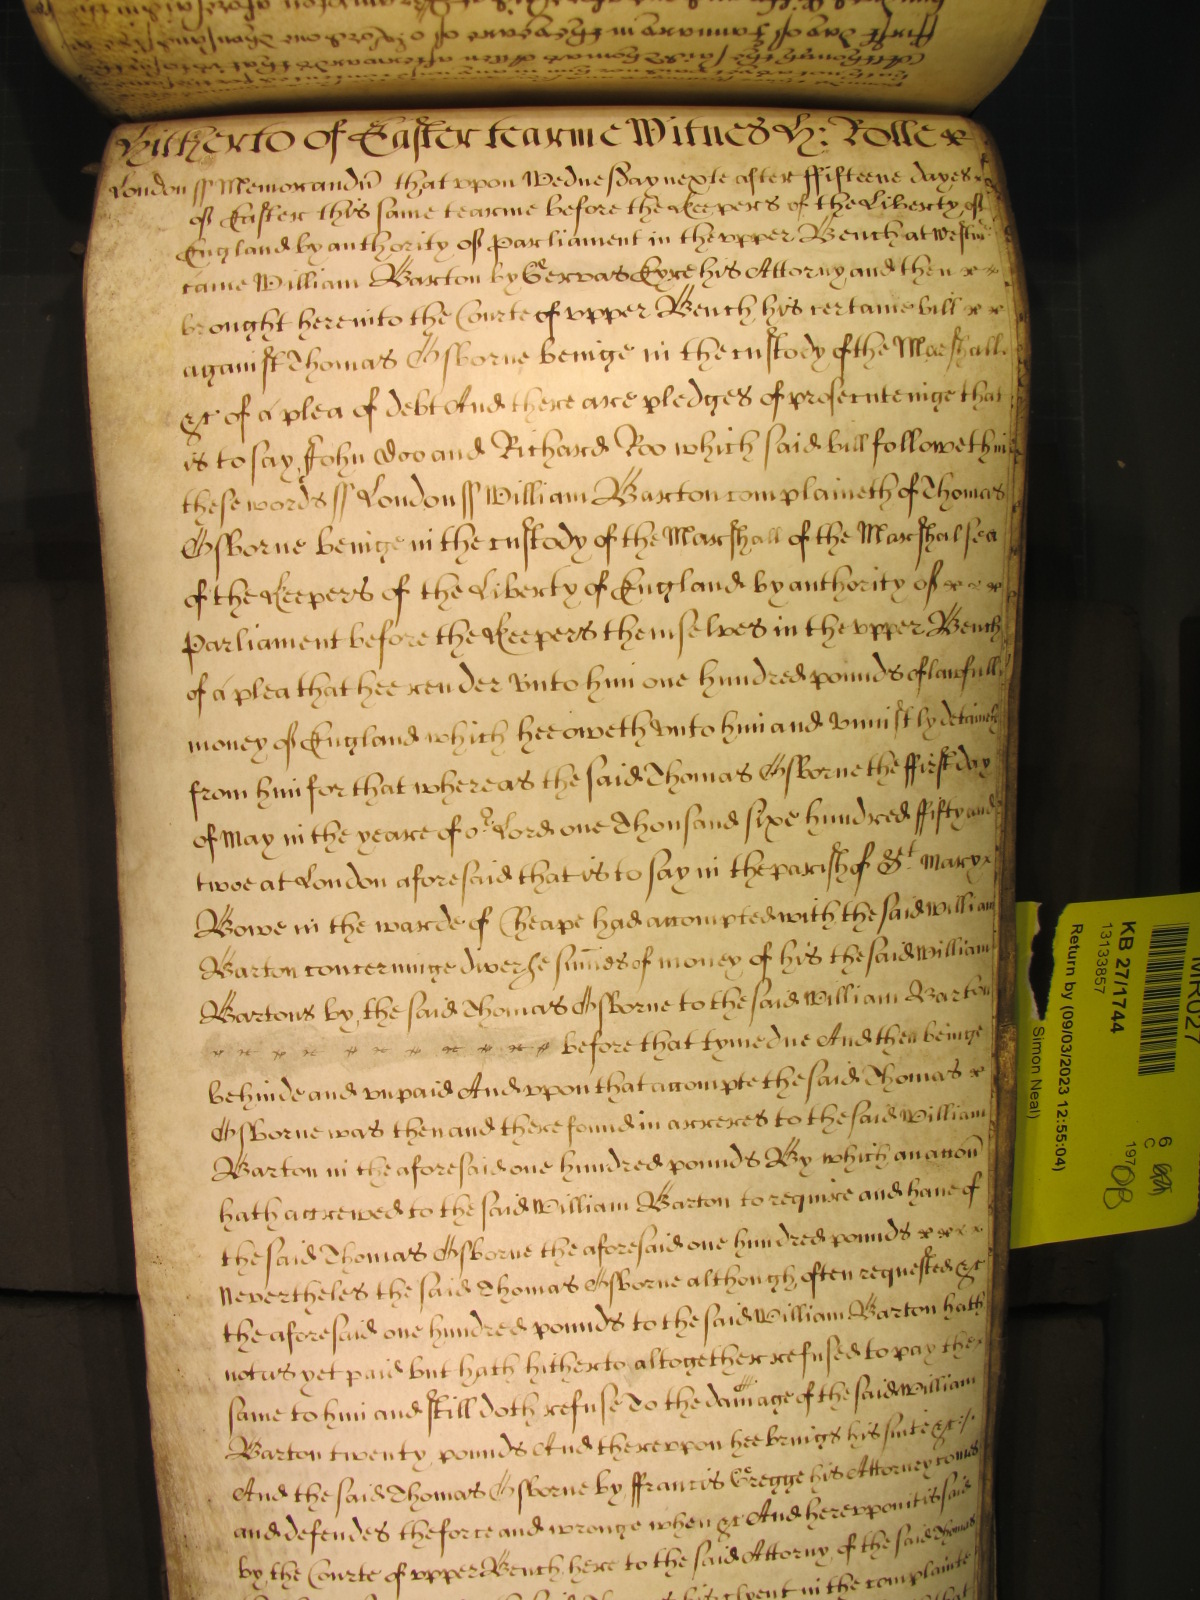 Hitherto of Easter tearme Witnes H: Rolle
London ss Memorandũ that upon Wednesday nexte after ffifteene dayes
of Easter this same tearme before the Keepers of the Liberty of
England by authority of Parliament in the upper Bench at Westmr
came William Barton by Gervas Eyre his Attorny and then
brought here into the Courte of upper Bench his certaine bill
against Thomas Osborne beinge in the custody of the Marshall
&c of a plea of debt And there are pledges of prosecuteinge that
is to say John Doo and Richard Roo which said bill followeth in
these words ss London ss William Barton complaineth of Thomas
Osborne beinge in the custody of the Marshall of the Marshalsea
of the Keepers of the Liberty of England by authority of
Parliament before the Keepers themselves in the upper Bench
of a plea that hee render unto him one hundred pounds of lawfull
money of England which hee oweth unto him and uniustly detaineth
from him for that whereas the said Thomas Osborne the ffirst day
of May in the yeare of or Lord one Thousand sixe hundred ffifty and
twoe at London aforesaid that is to say in the parish of St Mary
Bowe in the warde of Cheape had accompted with the said William
Barton concerninge diverse sum̃es of money of his the said William
Bartons by the said Thomas Osborne to the said William Barton
before that tyme due And then beinge
behinde and unpaid And upon that accompte the said Thomas
Osborne was then and there found in arreres to the said William
Barton in the aforesaid one hundred pounds By which an acc̃on
hath accrewed to the said William Barton to require and have of
the said Thomas Osborne the aforesaid one hundred pounds
Nevertheles the said Thomas Osborne although often requested &c
the aforesaid one hundred pounds to the said William Barton hath
not as yet paid but hath hitherto altogether refused to pay the
same to him and still doth refuse To the dam̃age of the said William
Barton twenty pounds And thereupon hee brings his suite &c
And the said Thomas Osborne by ffrancis Gregge his Attorney comes
and defendes the force and wronge when &c And hereupon it is said
by the Courte of upper Bench here to the said Attorny of the said Thomas
in the complainte
KB 27/1744
13133857
Return by (09/03/2023 12:55:04)
Simon Neal)
MR027
6
C
197